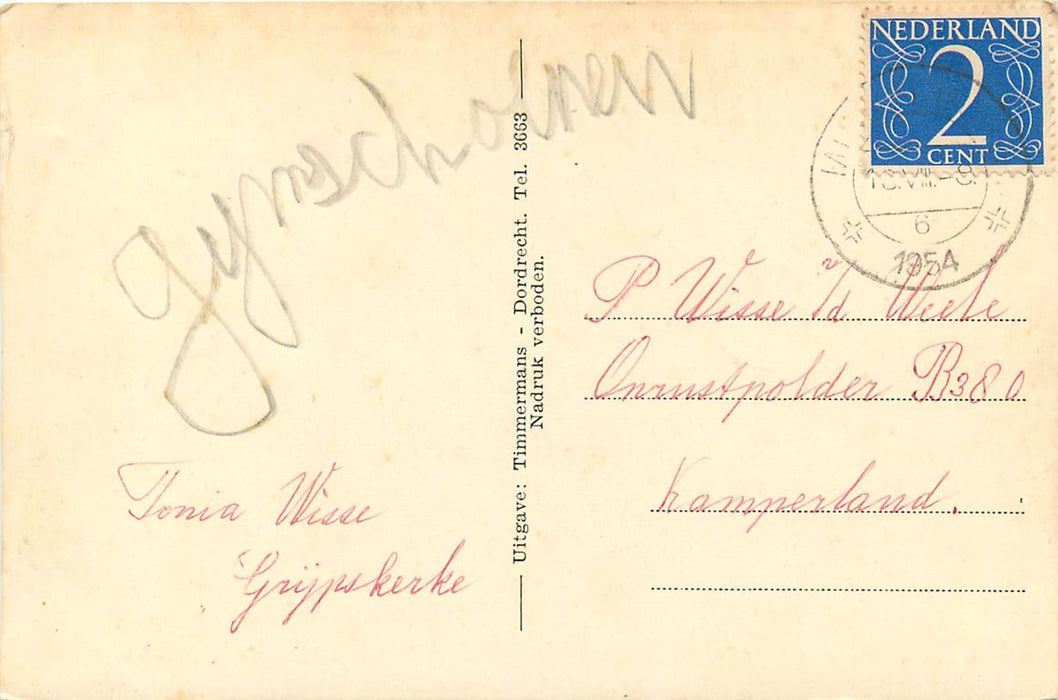 NEDERLAND
2
CENT
6
1954
Uitgave: Timmermans - Dordrecht. Tel. 3663
Nadruk verboden.
P Wisse v/d Weele
Onrustpolder B380
Kamperland.
Tonia Wisse
Grijpskerke